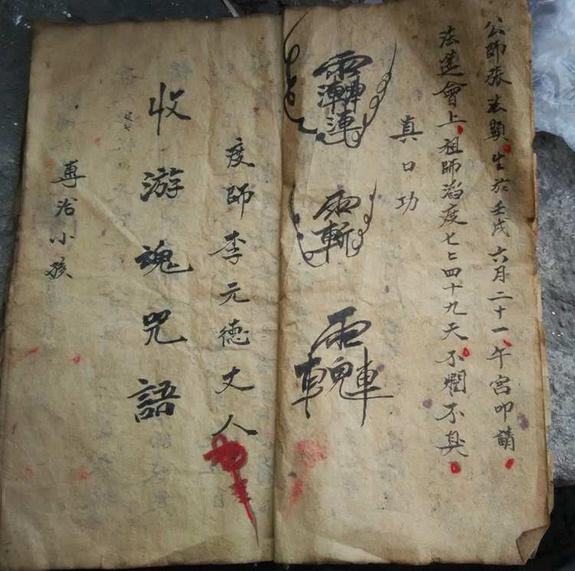 公師張法顯生於壬戌六月二十一午宮叩請
法蓮會上祖師滔度七七四十九天不爛不臭
真口功
度師李元德丈人
收游魂咒語
專治小孩